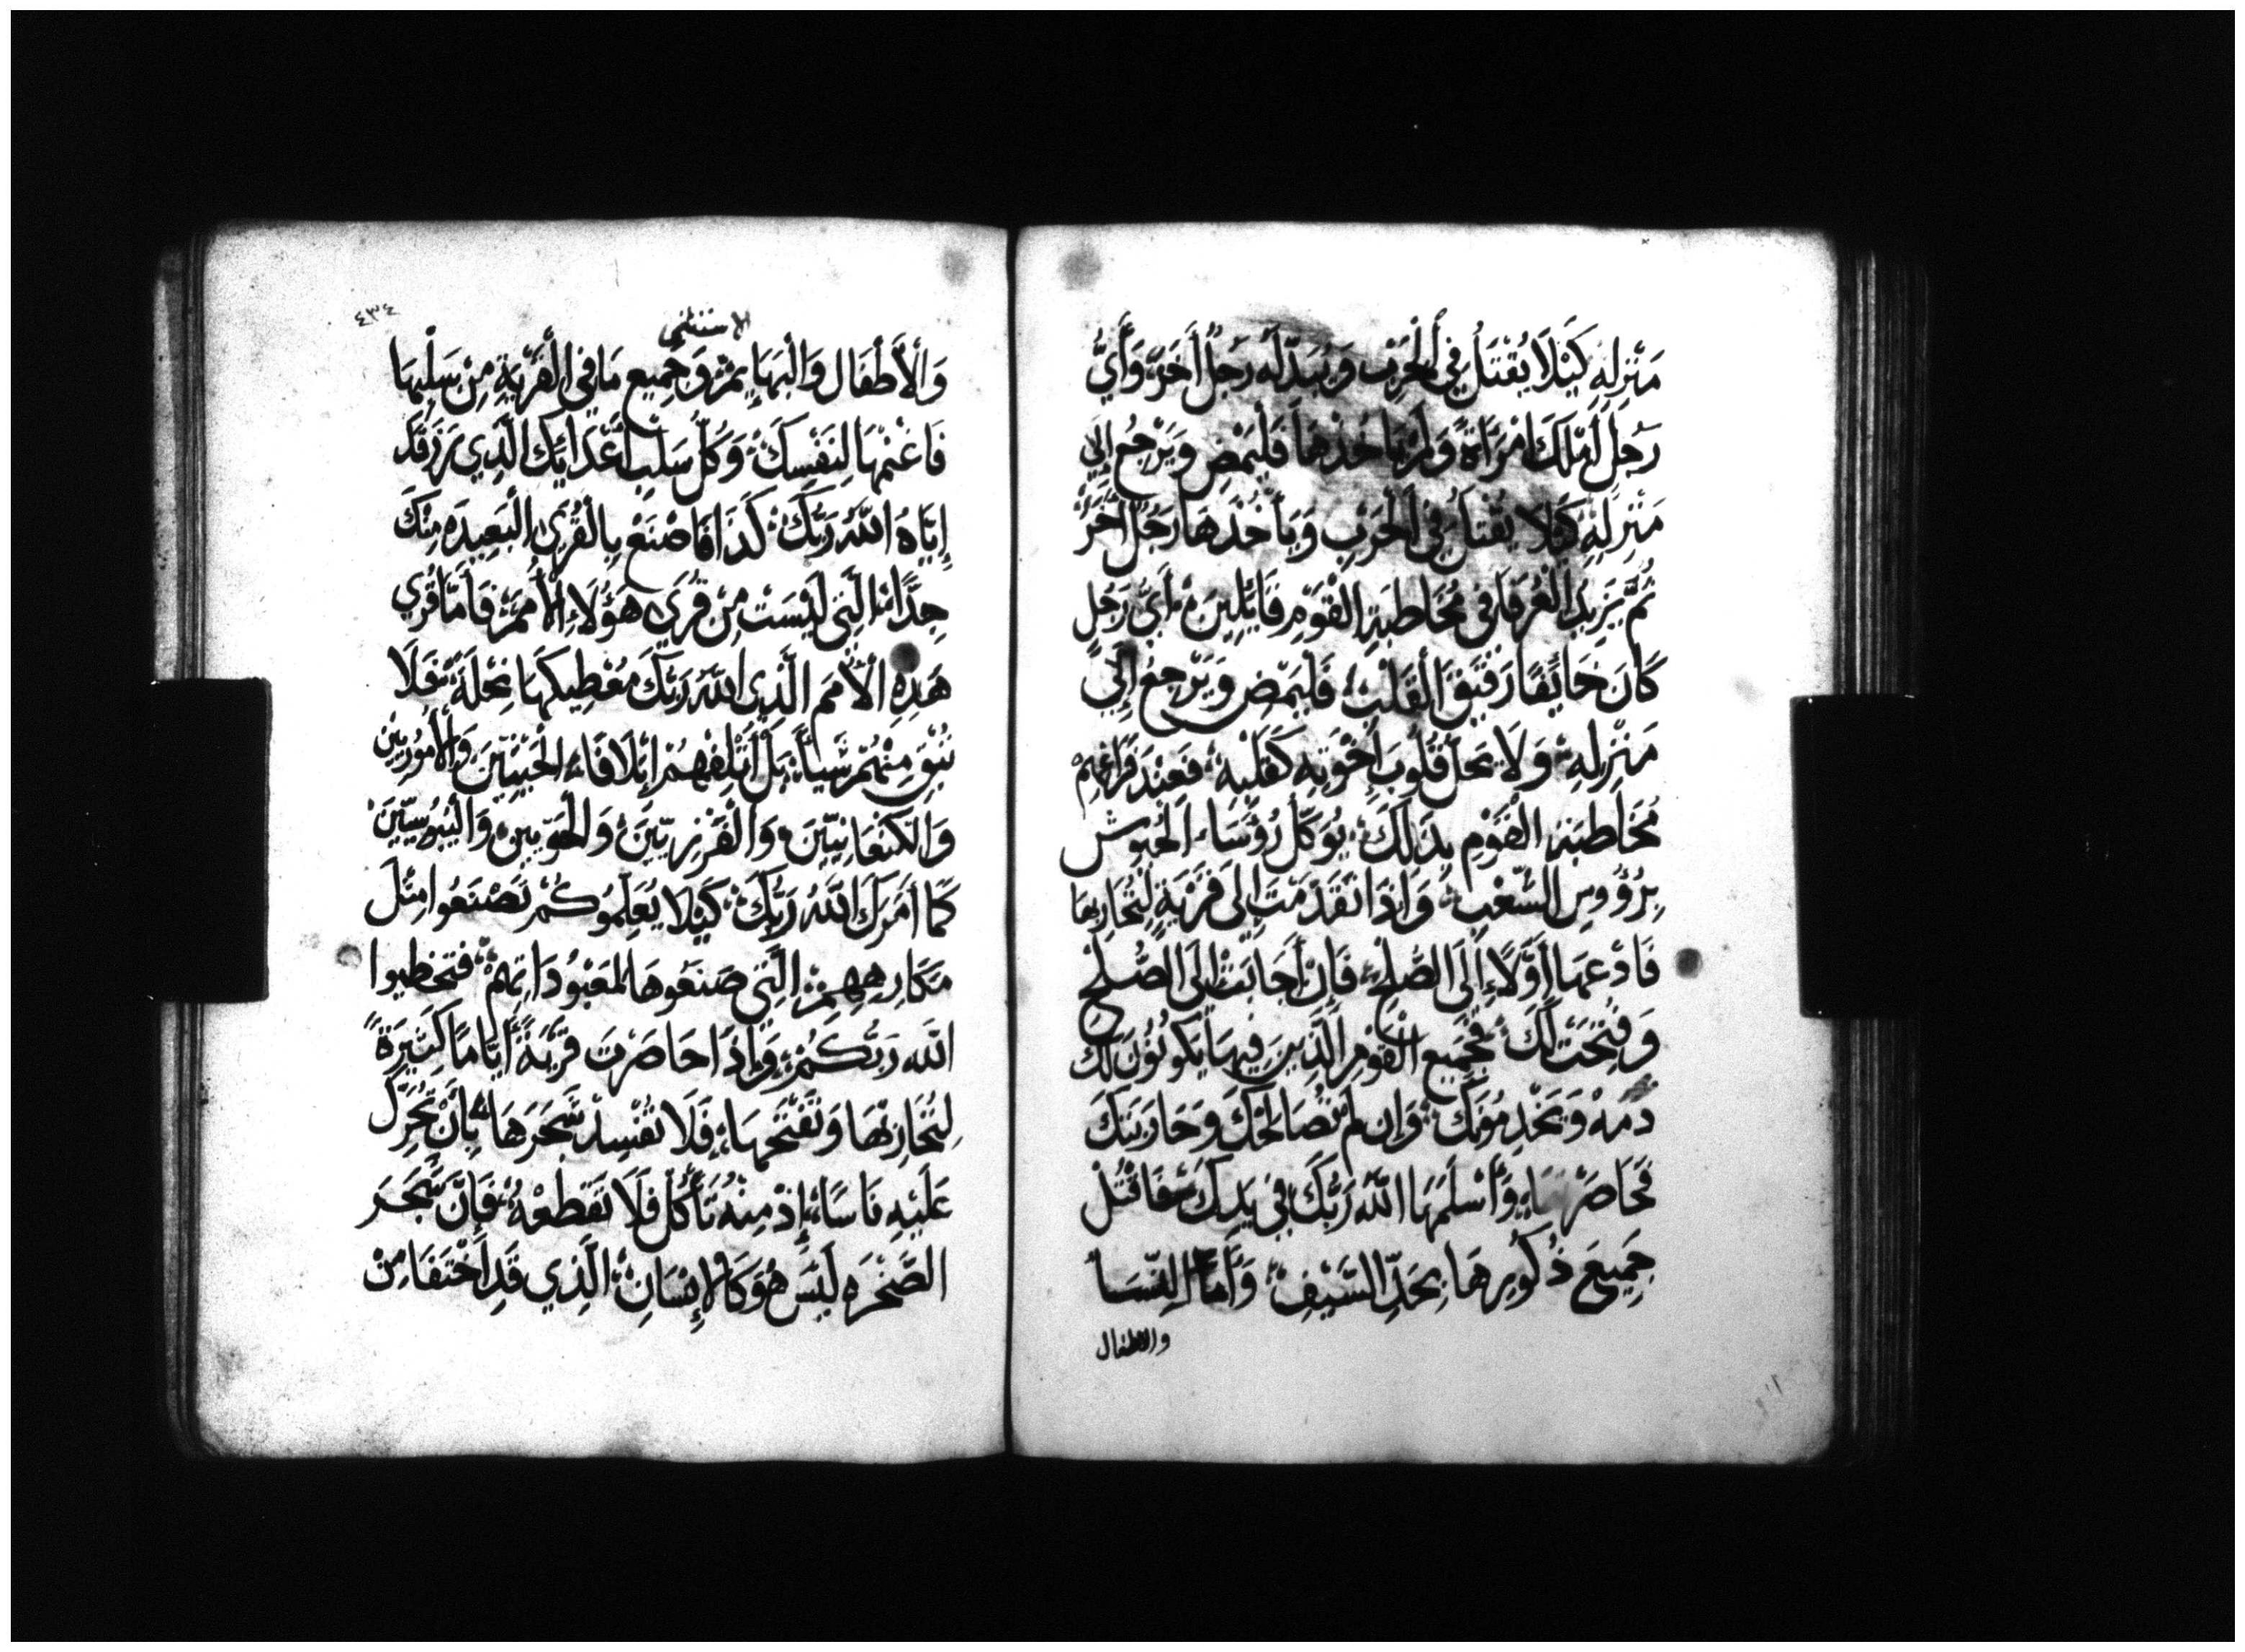 مَنْزِلِهِ كَيْلَا يُقْتَلُ فِي الْحَرْبِ وَيُبَدِّلَهُ رَجُلٌ اَخَرُ، وَأَيُّ
رَجُلٍ اَمْلَكَ امْرَأَةً وَلَمْ يَاخُذْهَا فَلْيَمْضِ وَيَرْجِعُ إِلَي
مَنْزِلِهِ كَيْلَا يُقْتَلُ فِي الْحَرْبِ وَيَأْخُذُهَا رَجُلٌ اخَرُ
ثُمَّ يَزِيدُ الْعُرَفَاءُ فِي مُخَاطَبَةِ الْقَوْمِ قَايِلِينَ، أَيُّ رَجُلٍ
كَانَ خَايِفًا رَقِيقَ الْقَلْبِ، فَلْيَمْضِ وَيَرْجِعُ إِلَي
مَنْزِلِهِ، وَلَا يَحِلُّ قُلُوبَ إِخْوَتِهِ كَقَلْبِهِ، فَعِنْدَ فَرَاغِهِمْ
مُخَاطَبَةِ الْقَوْمِ بِذَلِكَ، يُوَكِّلُ رُؤَسَاءَ الْجُيُوشِ
بِرُؤُوسِ الشَّعْبِ، وَإِذَا تَقَدَّمْتَ إِلَى قَرْيَةٍ لِتُحَارِبَهَا
فَادْعُهَا أَوَّلًا إِلَى الصُّلْحِ، فَإِنْ أَجَابَتْ إِلَى الصُّلْحِ
وَفَتَحَتْ لَكَ، فَجَمِيعُ الْقَوْمِ الَّذِينَ فِيهَا يَكُونُونَ لَكَ
ذِمَّهْ وَيَخْدِمُونَكَ، وَإِن لَمْ تُصَالِحْكَ وَحَارَبَتْكَ
فَحَاصِرْهَا، وَأَسْلَمَهَا اللَّهُ رَبُّكَ فِي يَدِكَ، فَاقْتُلْ
جَمِيعَ ذُكُورِهَا بِحَدِّ السَّيْفِ، وَأَمَّا النِّسَا
والاطفال
٤٣٤
الاستثني
وَالْأَطْفَال وَالْبَهَايِمْ، وَجَمِيعِ مَا فِي الْقَرْيَةِ مِنْ سَلْبِهَا
فَاغْنِمْهَا لِنَفْسِكَ، وَكُلْ سَلَبَ أَعْدَايِكَ الَّذِي رَزَقَكَ
إِيَّاهُ اللَّهُ رَبُّكَ، كَذَا فَاصْنَعْ بِالْقُرَي الْبَعِيدَهِ مِنْكَ
جِدًّا، الَّتِي لَيْسَتْ مِنْ قُرَي هَؤُلَاءِ الْأُمَمْ، فَأَمَّا قُرَي
هَذِهِ الْأُمَمِ الَّذِي اللَّهُ رَبُّكَ مُعْطِيكَهَا نِحْلَةً، فَلَا
تُبْقِ مِنْهُمْ شَيْأً، بَلْ أَتْلِفْهُمْ إِتْلَافًا، الْحِثِّيِّينَ وَالْأَمُورِيِّينَ
وَالْكَنْعَانِيِّينَ، وَالْفَرْزِيِّينَ، وَالْحَوِّيِينَ، وَالْيَبُوسِيِّينَ
كَمَا أَمَرَكَ اللَّهُ رَبُّكَ، كَيْلَا يُعَلِّمُوكُمْ تَصْنَعُوا مِثْلَ
مَكَارِهِهِمْ، الَّتِي صَنَعُوهَا لِمَعْبُودَاتِهِمْ، فَتُخْطِيوا
اللَّه رَبَّكُمْ، وَإِذَا حَاصَرْتَ قَرْيَةً أَيَّامًا كَثِيرَةً
لِتُحَارِبَهَا وَتَفْتَحَهَا، فَلَا تُفْسِدْ شَجَرَهَا، بِأَنْ تُحَرِّكَ
عَلَيْهِ نَاسًا، إِذْ مِنْهُ تَأْكُلْ فَلَا تَقْطَعْهُ، فَإِنَّ شَجَرَ
الصَّحْرَهِ لَيْسَ هُوَ كَالْإِنْسَانِ، الَّذِي قَدِ اَخْتَفَا مِنْ